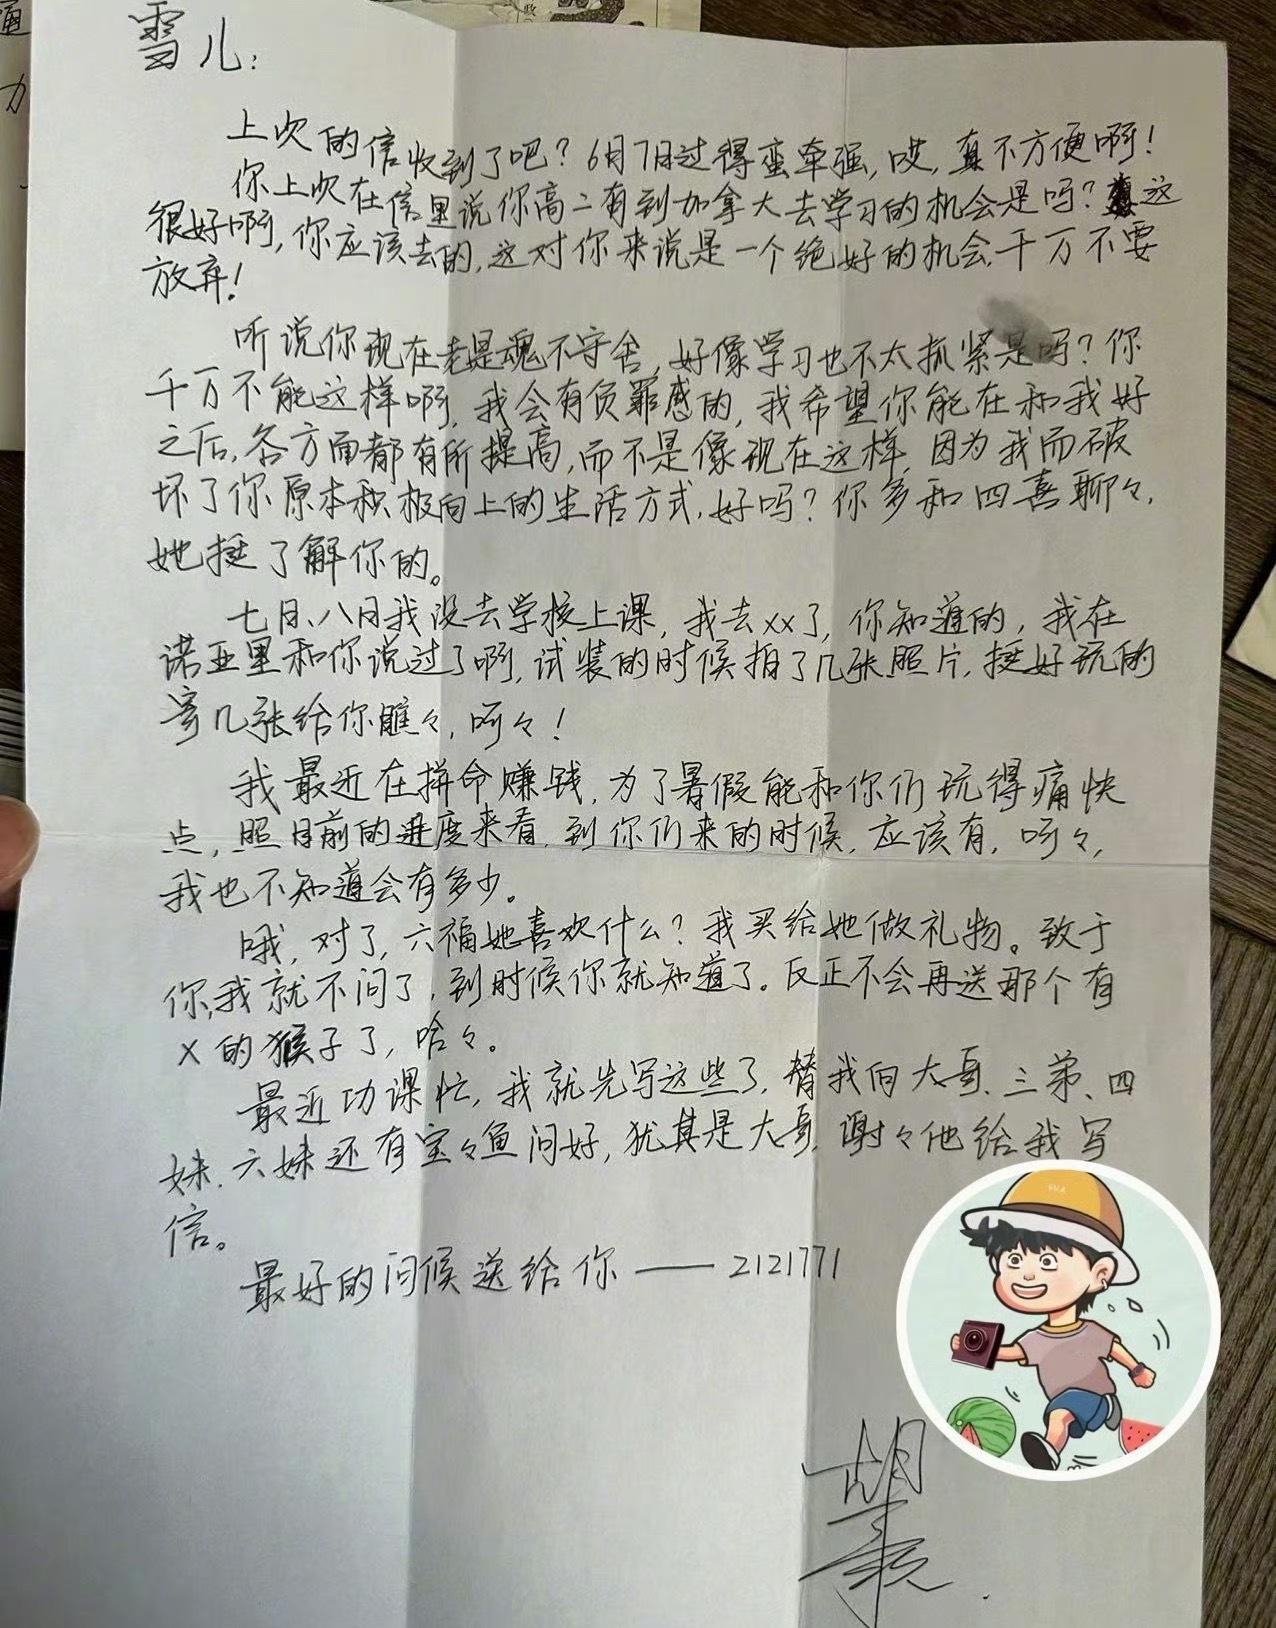 雪儿:
上次的信收到了吧？6月7日过得蛮牵强,哎,真不方便啊！
你上次在信里说你高二有到加拿大去学习的机会是吗？这
很好啊,你应该去的,这对你来说是一个绝好的机会,千万不要
放弃！
听说你现在老是魂不守舍,好像学习也不太抓紧是吗？你
千万不能这样啊,我会有负罪感的,我希望你能在和我好
之后,各方面都有所提高,而不是像现在这样,因为我而破
坏了你原本积极向上的生活方式,好吗？你多和四喜聊々,
她挺了解你的。
七月、八月我没去学校上课,我去xx了,你知道的,我在
诺亚里和你说过了啊,试装的时候拍了几张照片,挺好玩的
寄几张给你瞧々,呵々！
我最近在拼命赚钱,为了暑假能和你们玩得痛快
点,照目前的进度来看,到你们来的时候,应该有,呵々,
我也不知道会有多少。
哦,对了,六福她喜欢什么？我买给她做礼物。致于
你,我就不问了,到时候你就知道了。反正不会再送那个有
X的猴子了,哈々。
最近功课忙,我就先写这些了,替我向大哥、三弟、四
妹、六妹还有宝々鱼问好,犹其是大哥,谢々他给我写
信。
最好的问候送给你——2121771
胡
通
力